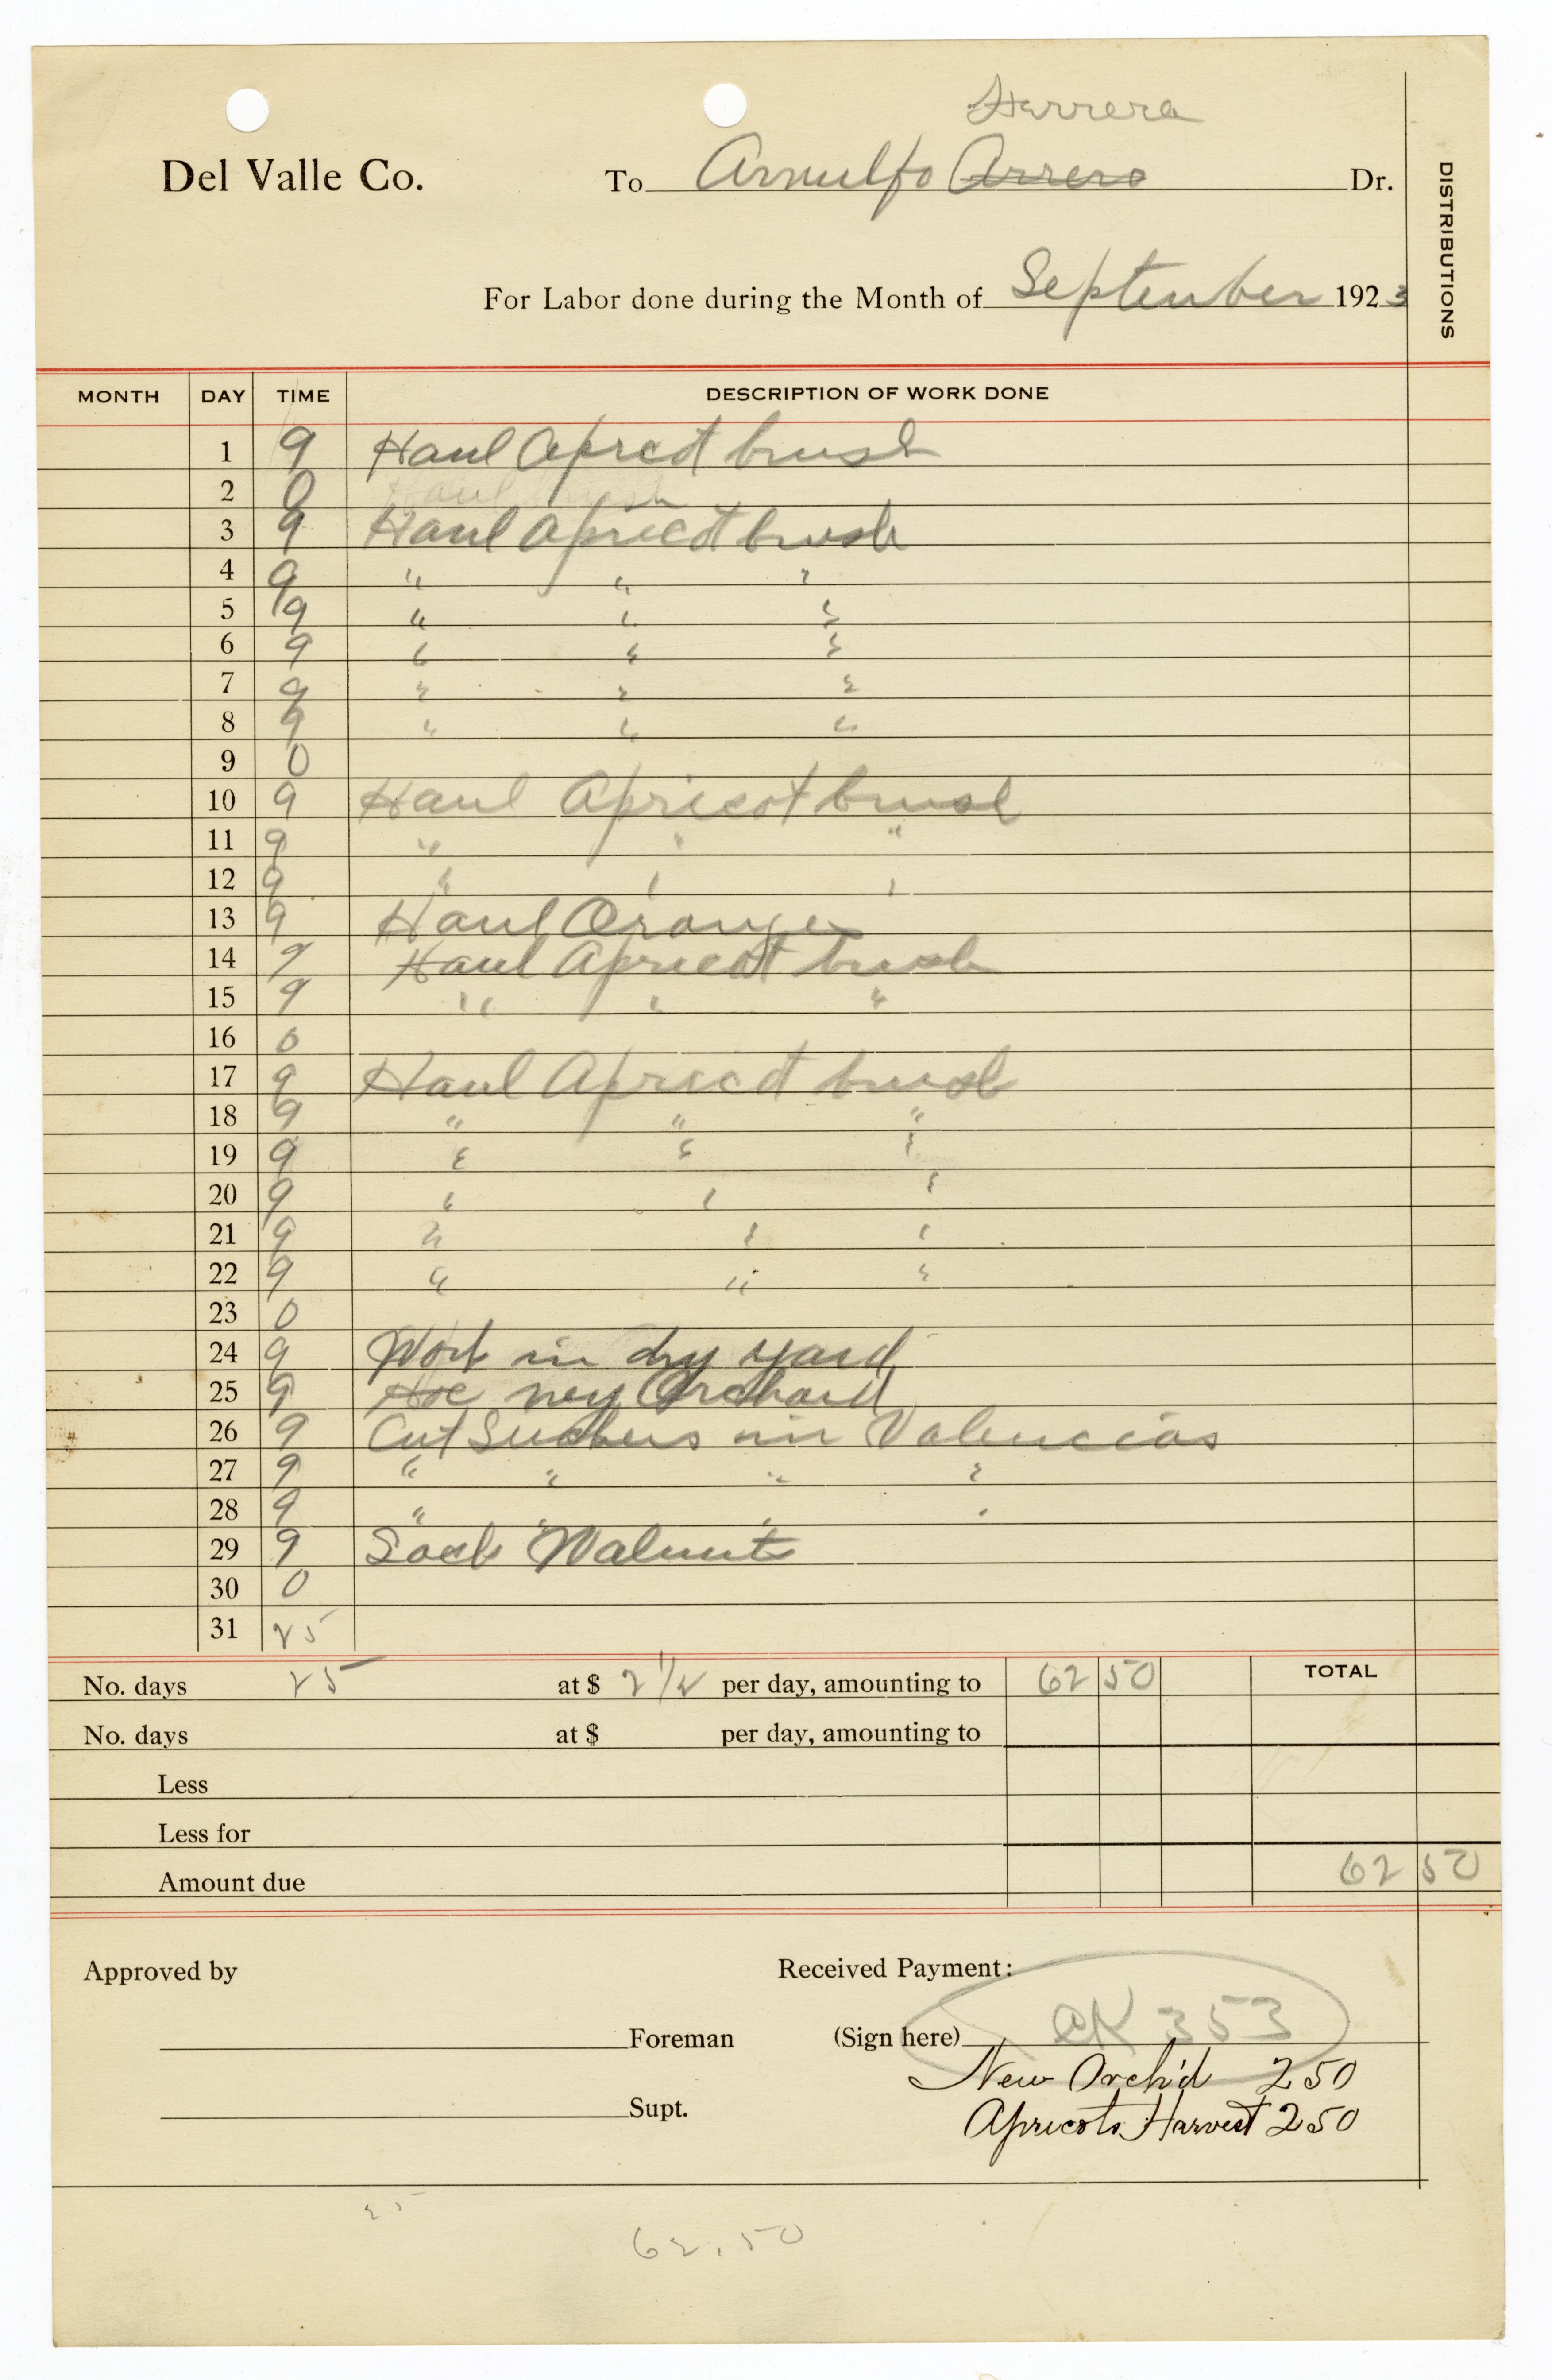 Herrera
Del Valle Co. To Arnulfo Arrero Dr.
DISTRIBUTIONS
For Labor done during the Month of September 1923
MONTH DAY TIME DESCRIPTION OF WORK DONE
1 9 Haul Apricot brush
2 0 Haul brush
3 9 Haul Apricot brush
4 9 " " "
5 9 " " "
6 9 " " "
7 9 " " "
8 9 " " "
9 0
10 9 Haul Apricot brush
11 9 " " "
12 9 " " "
13 9 Haul Oranges
14 9 Haul Apricot brush
15 9 " " "
16 0
17 9 Haul Apricot brush
18 9 " " "
19 9 " " "
20 9 " " "
21 9 " " "
22 9 " " "
23 0
24 9 Work in dry yard
25 9 Hoe ney Orchard
26 9 Cut Suckers in Valencias
27 9 " " " "
28 9 " " " "
29 9 Sack Walnuts
30 0
31 25
No. days 25 at $ 2 1/2 per day, amounting to 62 50 TOTAL
No. days at $ per day, amounting to
Less
Less for
Amount due 62 50
Approved by Received Payment:
Foreman (Sign here) CK 353
New Orch'd 250
Supt. Apricots Harvest 250
25
62.50